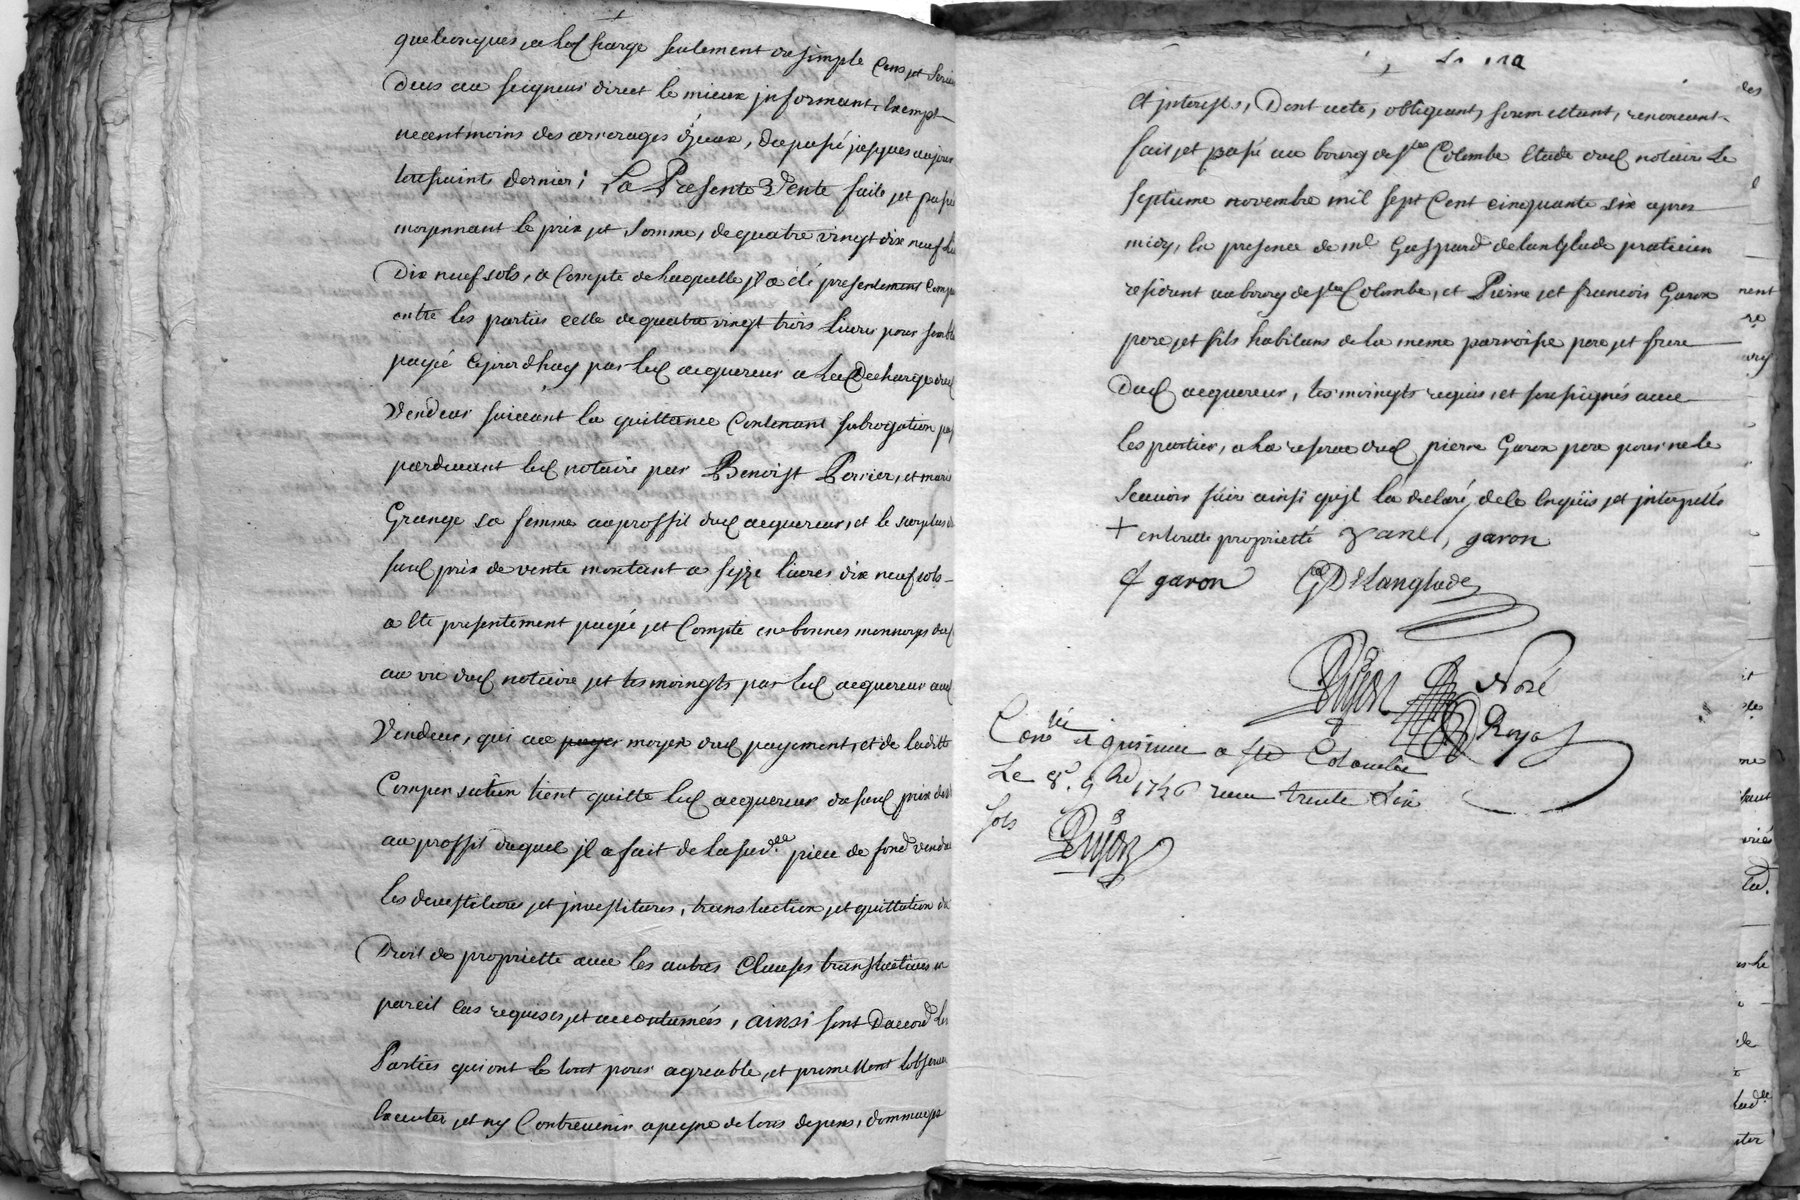 quelconques, a la charge seulement du simple Cens et servis
Deus au seigneur direct le mieux informant, Exempt
neantmoins des arrerages d'yceux, du passé jusques aujour
toussaints dernier; La Presente Vente faite et passée
moyennant le prix et somme, de quatre vingt dix neuf Livres
Dix neuf sols, a Compte de laquelle jl a eté presentement Compensé
entre les parties celle de quatre vingt trois Livres pour semblable
payée cejourdhuy par led acquereur a La Decharge dud
Vendeur suivant la quittance Contenant subrogation
pardevant led notaire par Benoist Perrier, et marie
Grange sa femme au proffit dud acquereur, et le surplus du
sud prix de vente montant a seize livres dix neuf sols
a Eté presentement payée et Compté en bonnes monnoyes
au vu dud notaire et tesmoingts par led acquereur aud
Vendeur, qui au payer moyen dud payement, et de laditte
Compensation tient quitte led acquereur du sud prix de
au proffit duquel jl a fait de la sudte piece de fond vendue
les devestitures et jnvestitures, translaction et quittation du
Droit de propriette avec les autres Clauses translactives en
pareil cas requises et accoutumées, ainsi sont D'accord Les
Parties qui ont le tout pour agreable, et promettent L'observer
Executer et ny Contrevenir a peyne de tous depens, dommages
et jnterests, Dont acte, obligeant, soumettant, renonceant
fait et passé au bourg de ste Colombe Etude dud notaire Le
septieme novembre mil sept Cent cinquante six apres
midy, En presence de me Gaspard delanglade praticien
residant au bourg de ste Colombe, et Pierre et francois Garon
pere et fils habitans de la meme parroisse pere et frere
Dud acquereur, tesmoingts requis, et soussignés avec
les parties, a La reserve dud pierre Garon pere pour ne le
scavoir faire ainsi qujl l'a declaré, de ce Enquis et jnterpellé
+ en toutte proprietté garon
f garon G DeLanglade
Dujon Noré Royal
Conlé a ste Colombe
Le 8e 9bre 1756 recu trente six
sols Dujon